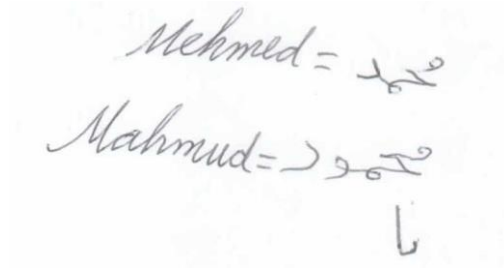 Mehmed = محمد
Mahmud = محمود
با